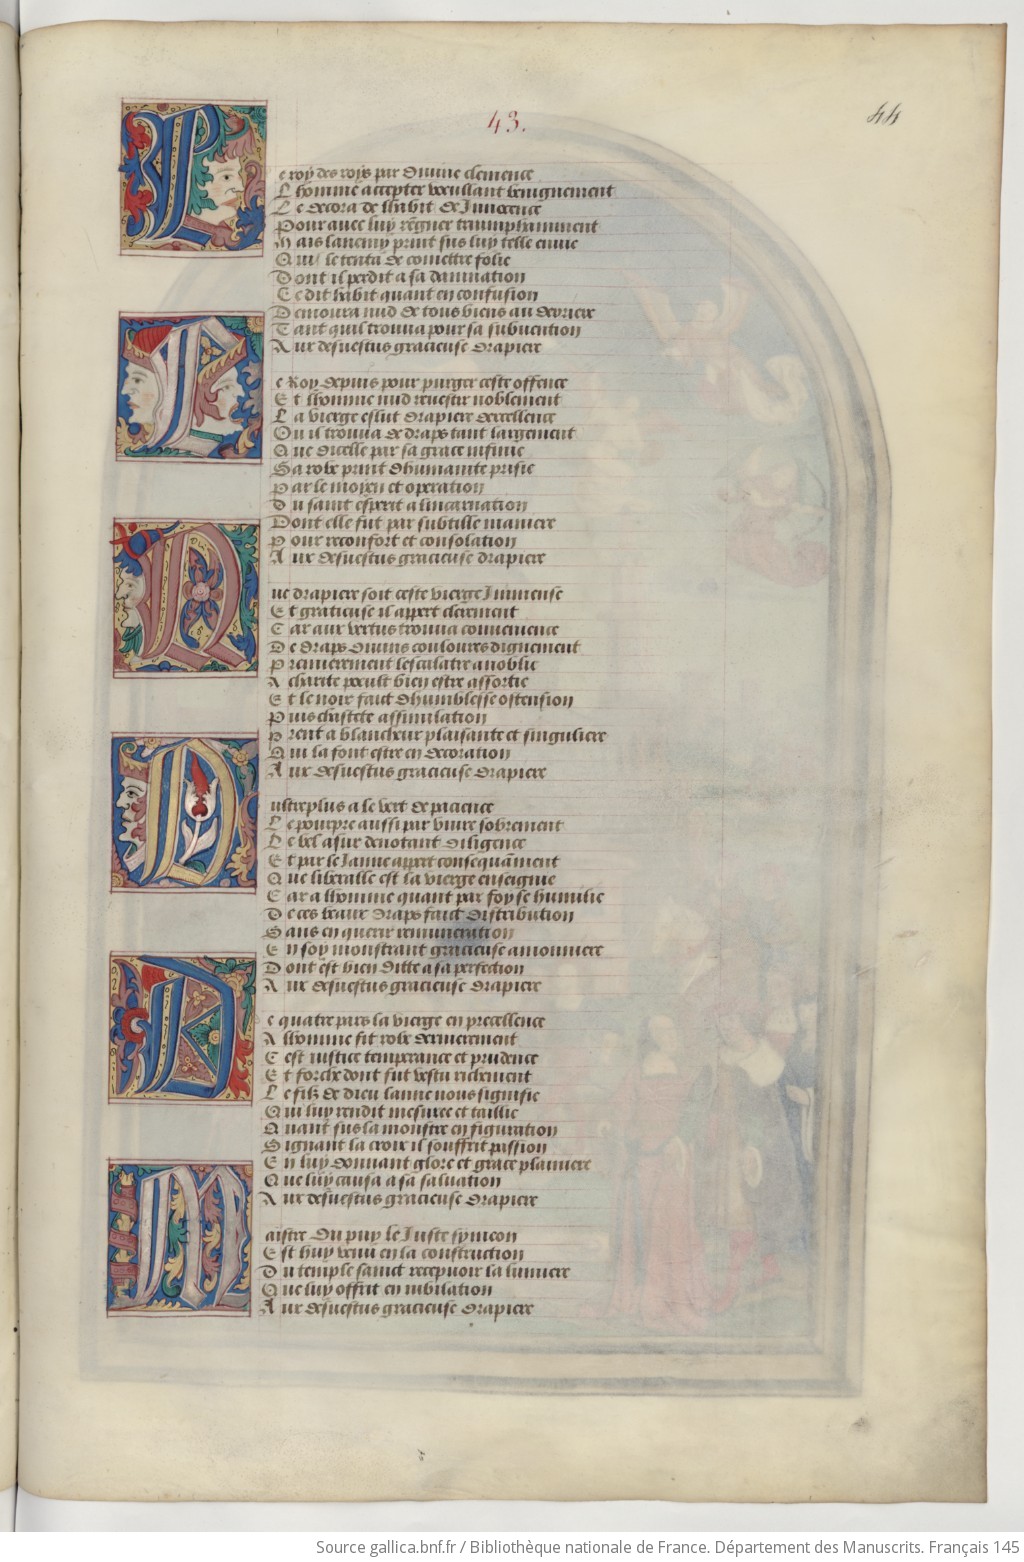 43.
44
Le roy des roys par divine clemence
Lhomme accepter voeullant benignement
Le decora de lhabit de Innocence
Pour avec luy regner triumphamment
Mais lanemy print sus luy telle envie
Quil le tenta de comettre folie
Dont il perdit a sa damnation
Ce dit habit quant en confusion
Demoura nud de tous biens au derriere
Tant quil trouva pour sa subvention
Aux desvestus gracieuse drapiere
Le Roy depuis pour purger ceste offence
Et lhomme nud revestir noblement
La vierge eslut drapiere dexcellence
Ou il trouva de draps tant largement
Que dicelle par sa grace infinie
Sa robe print dhumanite prisie
Par le moyen et operation
Du saint esperit a lincarnation
Dont elle fut par subtille maniere
Pour reconfort et consolation
Aux desvestus gracieuse drapiere
Que drapiere soit ceste vierge Immense
Et gratieuse il appert clerement
Car aux vertus trouva convenience
De draps divins couloures dignement
Premierement lescalatre anoblie
A charite poeult bien estre assortie
Et le noir faict dhumblesse ostension
Puis chastete assimulation
Prent a blancheur plaisante et singuliere
Qui la font estre en decoration
Aux desvestus gracieuse drapiere
Dustre plus a le vert de pacience
Le pourpre aussi par vivre sobrement
Le bel asur denotant diligence
Et par le Jaune appert consequāment
Que liberalle est la vierge enseignie
Car a lhomme quant par foy se humilie
De ces beaux draps faict distribution
Sans en querir remuneration
En soy monstrant gracieuse amonniere
Dont est bien ditte a sa perfection
Aux desvestus gracieuse drapiere
De quatre pars la vierge en precellence
A lhomme fit robe dermerement
Cest justice temperance et prudence
Et force dont fut vestu richement
Le filz de dieu lanne nous signifie
Qui luy rendit mesuree et taillie
Quant sus la monstre en figuration
Signant la croix il souffrit passion
En luy donnant glore et grace planiere
Que luy causa a sa salvation
Aux desvestus gracieuse drapiere
Maistre du puy le Juste symeon
Est huy venu en la construction
Du temple sainct recepvoir la lumiere
Que luy offrit en iubilation
Aux desvestus gracieuse drapiere
Source gallica.bnf.fr / Bibliothèque nationale de France. Département des Manuscrits. Français 145